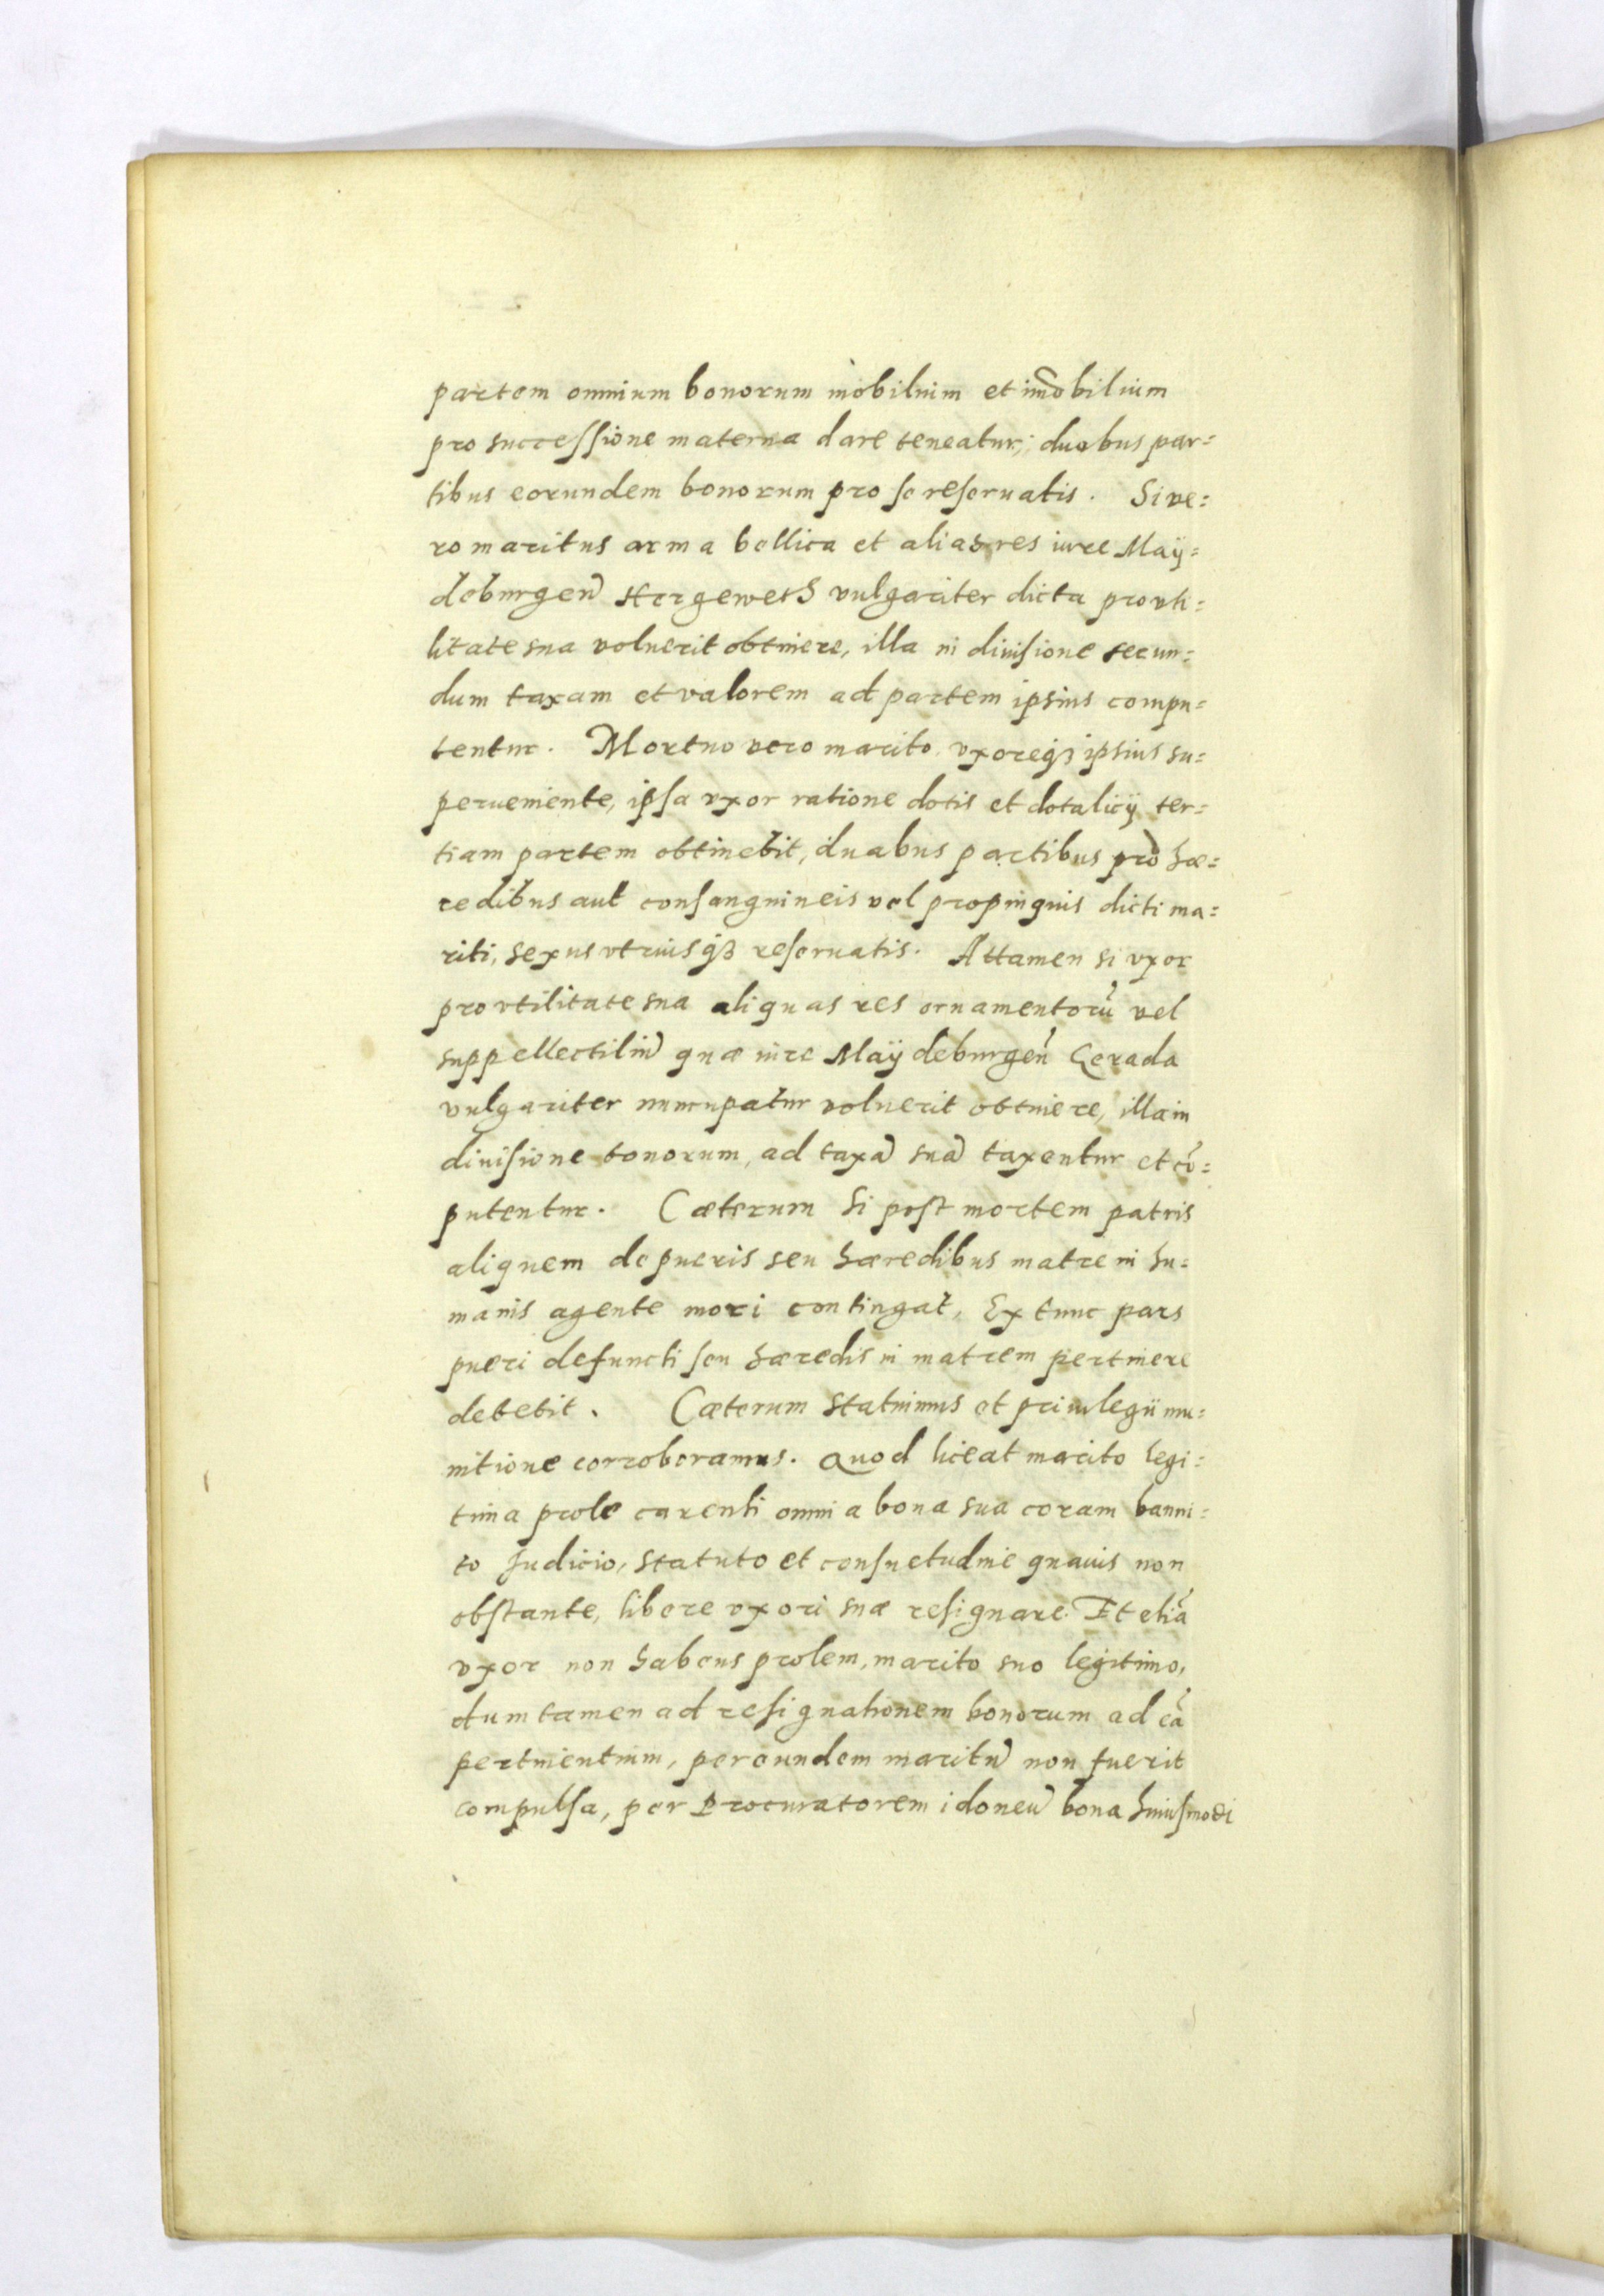 partem omnium bonorum mobilium et im̃obilium
pro successione materna dare teneatur; duabus par=
tibus eorundem bonorum pro se reseruatis. Si ve=
ro maritus arma bellica et alias res iure Maÿ=
deburgen̄ Hergeweth vulgariter dicta pro vti=
litate sua voluerit obtinere, illa in diuisione secun=
dum taxam et valorem ad partem ipsius compu=
tentur. Mortuo vero marito vxoreqꝫ ipsius su=
perueniente, ipsa vxor ratione dotis et dotalicÿ ter=
tiam partem obtinebit, duabus partibus pro hæ=
redibus aut consanguineis vel propinquis dicti ma=
riti, sexus vtriusqꝫ reseruatis. Attamen si vxor
pro vtilitate sua aliquas res ornamentorū vel
suppellectiliū quæ iure Maÿdeburgen̄ Gerada
vulgariter nuncupatur voluerit obtinere, illa in
diuisione bonorum, ad taxā suā taxentur et cō=
putentur. Cæterum si post mortem patris
aliquem de pueris seu hæredibus matre in hu=
manis agente mori contingat, Ex tunc pars
pueri defuncti seu hæredis in matrem pertinere
debebit. Cæterum statuimus et priuilegii mu=
nitione corroboramus. Quod liceat marito legi=
tima prole carenti omnia bona sua coram banni=
to Judicio, statuto et consuetudine quauis non
obstante, libere vxori suæ resignare. Et etiā
vxor non habens prolem, marito suo legitimo,
dum tamen ad resignationem bonorum ad eā
pertinentium, per eundem maritū non fuerit
compulsa, per Procuratorem idoneū bona huiusmodi